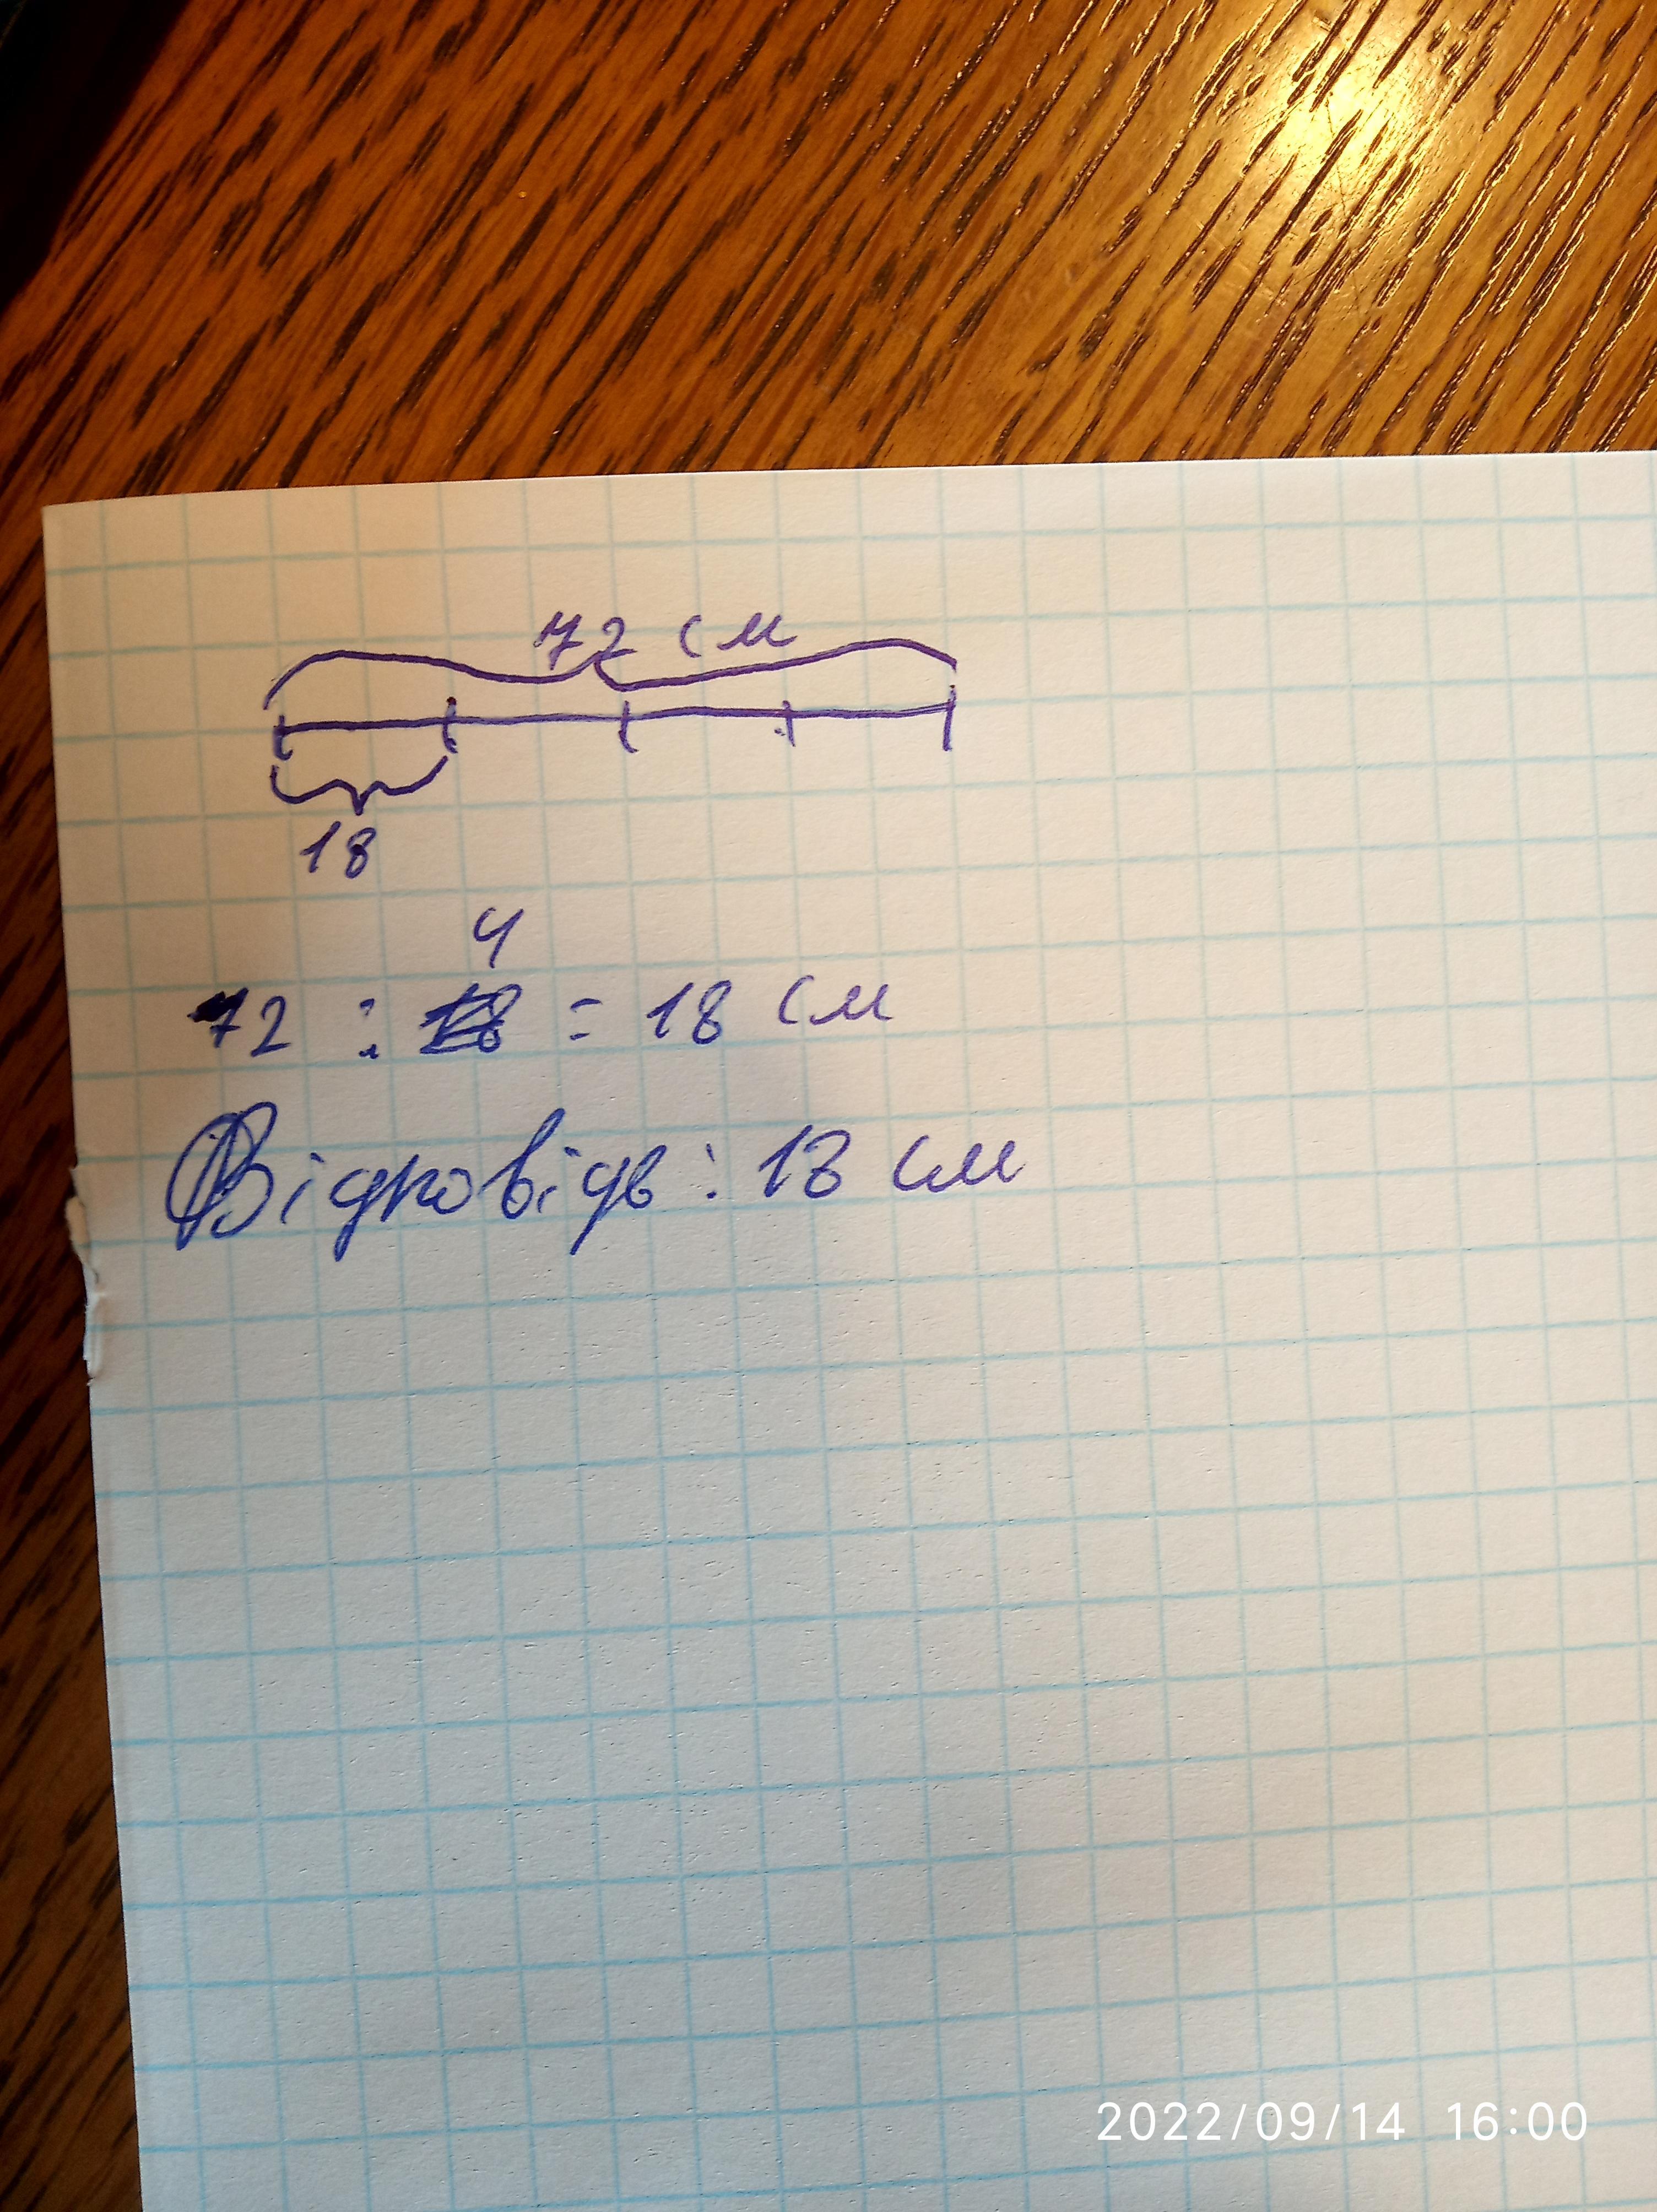 72 см
18
4
72 : 18 = 18 см
Відповідь: 18 см
2022/09/14 16:00